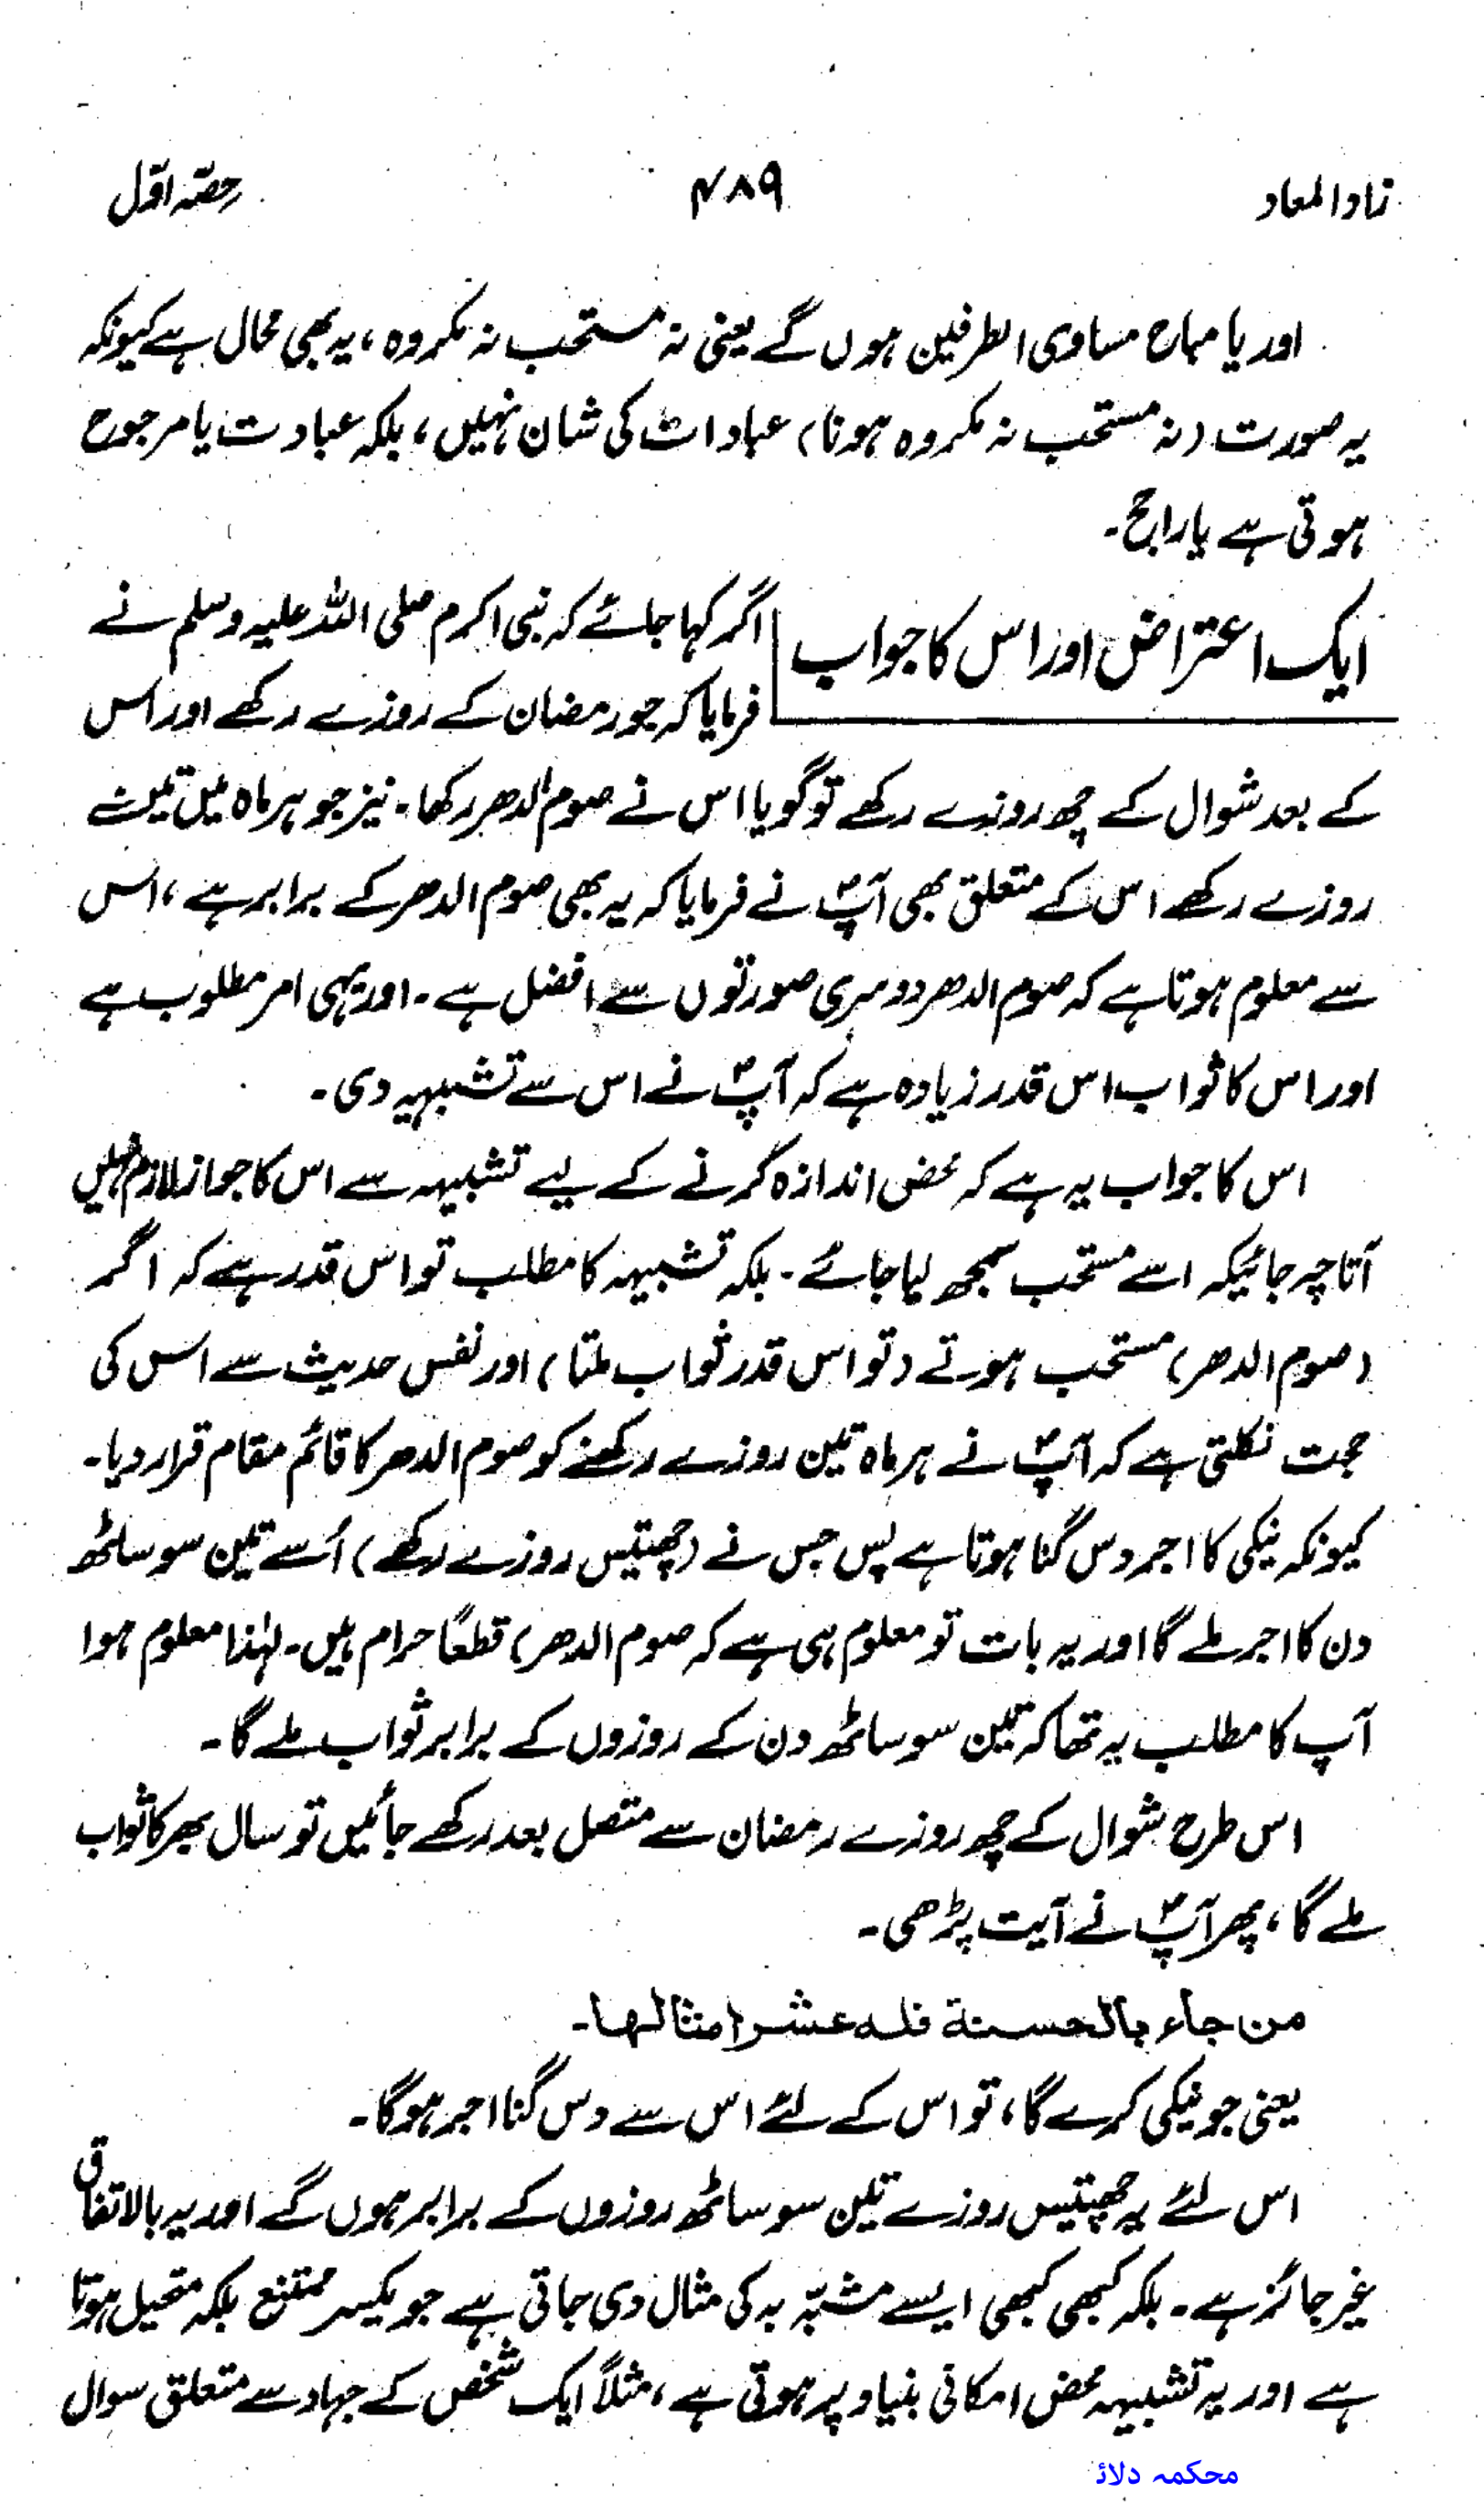 زادالمعاد ۴۸۹ حصّہ اوّل
اور یا مباح مساوی الطرفین ہوں گے یعنی نہ مستحب نہ مکروہ، یہ بھی محال ہے کیونکہ
یہ صورت (نہ مستحب نہ مکروہ ہونا) عبادات کی شان نہیں، بلکہ عبادت یا مرجوح
ہوتی ہے یا راجح۔
ایک اعتراض اور اس کا جواب
اگر کہا جائے کہ نبی اکرم صلی اللہ علیہ وسلم نے
فرمایا کہ جو رمضان کے روزے رکھے اور اس
کے بعد شوال کے چھ روزے رکھے تو گویا اس نے صوم الدھر رکھا۔ نیز جو ہر ماہ میں تین
روزے رکھے اس کے متعلق بھی آپؐ نے فرمایا کہ یہ بھی صوم الدھر کے برابر ہے، اس
سے معلوم ہوتا ہے کہ صوم الدھر دوسری صورتوں سے افضل ہے۔ اور یہی امر مطلوب ہے
اور اس کا ثواب اس قدر زیادہ ہے کہ آپؐ نے اس سے تشبیہہ دی۔
اس کا جواب یہ ہے کہ محض اندازہ کرنے کے لیے تشبیہہ سے اس کا جواز لازم نہیں
آتا چہ جائیکہ اسے مستحب سمجھ لیا جائے۔ بلکہ تشبیہہ کا مطلب تو اس قدر ہے کہ اگر
(صوم الدھر) مستحب ہوتے (تو اس قدر ثواب ملتا) اور نفس حدیث سے اس کی
حجت نکلتی ہے کہ آپؐ نے ہر ماہ تین روزے رکھنے کو صوم الدھر کا قائم مقام قرار دیا۔
کیونکہ نیکی کا اجر دس گنا ہوتا ہے پس جس نے (چھتیس روزے رکھے) اُسے تین سو ساٹھ
دن کا اجر ملے گا اور یہ بات تو معلوم ہی ہے کہ صوم الدھر، قطعًا حرام ہیں۔ لہٰذا معلوم ہوا
آپ کا مطلب یہ تھا کہ تین سو ساٹھ دن کے روزوں کے برابر ثواب ملے گا۔
اس طرح شوال کے چھ روزے رمضان سے متصل بعد رکھے جائیں تو سال بھر کا ثواب
ملے گا، پھر آپؐ نے آیت پڑھی۔
من جاء بالحسنة فله عشر امثالها۔
یعنی جو نیکی کرے گا، تو اس کے لئے اس سے دس گنا اجر ہوگا۔
اس لئے یہ چھتیس روزے تین سو ساٹھ روزوں کے برابر ہوں گے اور یہ بالاتفاق
غیر جائز ہے۔ بلکہ کبھی کبھی ایسے مشبّہ بہ کی مثال دی جاتی ہے جو یکسر ممتنع بلکہ مستحیل ہوتا
ہے اور یہ تشبیہہ محض امکانی بنیاد پر ہوتی ہے، مثلاً ایک شخص کے جہاد سے متعلق سوال
محکمہ دلائ